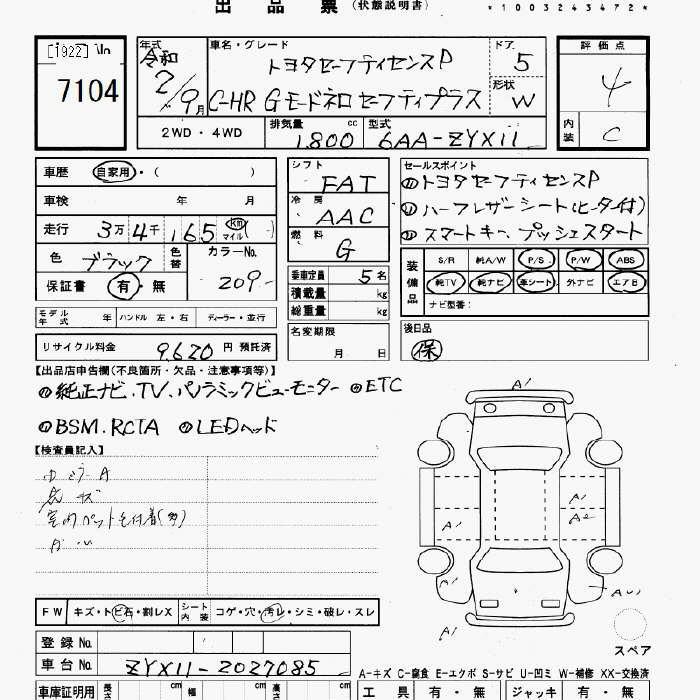 出品票(状態説明書)
*1003243472*
[1922]
7104
年式 令和 2/9月
車名・グレード トヨタセーフティセンスP
C-HR GモードネロセーフティプラスII
ドア 5
形状 W
評価点 4
内装 C
2WD・4WD
排気量 1,800 cc
型式 6AA-ZYX11
車歴 自家用・( )
車検 年 月
走行 3万4千165 km マイル ( )
色 ブラック 色替 カラーNo. 209-
保証書 有・無
モデル年式 年 ハンドル 左・右 ディーラー・並行
リサイクル料金 9,620 円 預託済
シフト FAT
冷房 AAC
燃料 G
乗車定員 5名
積載量 kg
総重量 kg
名変期限 月 日
セールスポイント
トヨタセーフティセンスP
ハーフレザーシート(ヒーター付)
スマートキー、プッシュスタート
装備品 S/R 純A/W P/S P/W ABS
純TV 純ナビ 革シート 外ナビ エアB
ナビ型番:
後日品
保
【出品店申告欄(不良箇所・欠品・注意事項等)】
純正ナビ.TV、パノラミックビューモニター ETC
BSM.RCTA LEDヘッド
【検査員記入】
A
FW キズ・トビ石・割レX シート内装 コゲ・穴・汚レ・シミ・破レ・スレ
登録No.
車台No. ZYX11-2027085
車庫証明用 長さ cm 幅 cm 高さ cm
A1
A1
A1
A2
A1
A1
スペア
A-キズ C-腐食 E-エクボ S-サビ U-凹ミ W-補修 XX-交換済
工具 有・無 ジャッキ 有・無